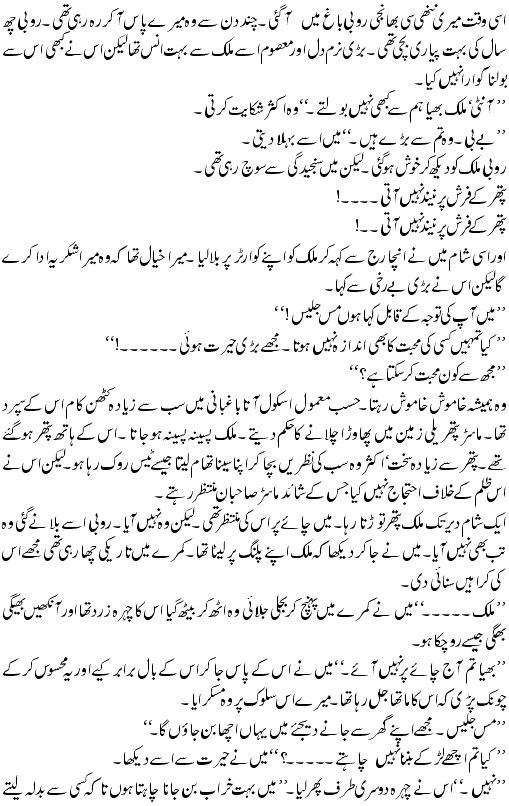 اسی وقت میری ننھی سی بھانجی روبی باغ میں آ گئی ۔ چند دن سے وہ میرے پاس آ کر رہ رہی تھی ۔ روبی چھ
سال کی بہت پیاری بچی تھی ۔ بڑی نرم دل اور معصوم اسے ملک سے بہت انس تھا لیکن اس نے کبھی اس سے
بولنا گوارا نہیں کیا ۔
’’آنٹی‘ ملک بھیا ہم سے کبھی نہیں بولتے ۔‘‘ وہ اکثر شکایت کرتی ۔
’’بے بی ۔ وہ تم سے بڑے ہیں ۔‘‘ میں اسے بہلا دیتی ۔
روبی ملک کو دیکھ کر خوش ہو گئی ۔ لیکن میں سنجیدگی سے سوچ رہی تھی ۔
پتھر کے فرش پر نیند نہیں آتی ۔۔۔۔!
پتھر کے فرش پر نیند نہیں آتی ۔۔!
اور اسی شام میں نے انچارج سے کہہ کر ملک کو اپنے کوارٹر پر بلا لیا ۔ میرا خیال تھا کہ وہ میرا شکریہ ادا کرے
گا لیکن اس نے بڑی بے رخی سے کہا ۔
’’میں آپ کی توجہ کے قابل کہا ہوں مس جلیس !‘‘
’’کیا تمہیں کسی کی محبت کا بھی اندازہ نہیں ہوتا ۔ مجھے بڑی حیرت ہوئی ۔۔۔۔۔۔!‘‘
’’مجھ سے کون محبت کر سکتا ہے؟‘‘
وہ ہمیشہ خاموش خاموش رہتا ۔ حسب معمول اسکول آتا باغبانی میں سب سے زیادہ کٹھن کام اس کے سپرد
تھا ۔ ماسٹر پتھریلی زمین میں پھاوڑا چلانے کا حکم دیتے ۔ ملک پسینہ پسینہ ہو جاتا ۔ اس کے ہاتھ پتھر ہو گئے
تھے ۔ پتھر سے زیادہ سخت‘ اکثر وہ سب کی نظریں بچا کر اپنا سینا تھام لیتا جیسے ٹیس روک رہا ہو ۔ لیکن اس نے
اس ظلم کے خلاف احتجاج نہیں کیا جس کے شائد ماسٹر صاحبان منتظر رہتے ۔
ایک شام دیر تک ملک پتھر توڑتا رہا ۔ میں چائے پر اس کی منتظر تھی ۔ لیکن وہ نہیں آیا ۔ روبی اسے بلانے گئی وہ
تب بھی نہیں آیا ۔ میں نے جا کر دیکھا کہ ملک اپنے پلنگ پر لیٹا تھا ۔ کمرے میں تاریکی چھا رہی تھی مجھے اس
کی کراہیں سنائی دی ۔
’’ملک ۔۔۔۔۔‘‘ میں نے کمرے میں پہنچ کر بجلی جلائی وہ اٹھ کر بیٹھ گیا اس کا چہرہ زرد تھا اور آنکھیں بھیگی
بھیگی جیسے رو چکا ہو ۔
’’بھیا تم آج چائے پر نہیں آئے ۔‘‘ میں نے اس کے پاس جا کر اس کے بال برابر کیے اور یہ محسوس کر کے
چونک پڑی کہ اس کا ماتھا جل رہا تھا ۔ میرے اس سلوک پر وہ مسکرایا ۔
’’مس جلیس ۔ مجھے اپنے گھر سے جانے دیجئے میں یہاں اچھا بن جاؤں گا ۔‘‘
’’کیا تم اچھے لڑکے بننا نہیں چاہتے ۔۔۔۔۔؟‘‘ میں نے حیرت سے اسے دیکھا ۔
’’نہیں ۔‘‘ اس نے چہرہ دوسری طرف پھر لیا ۔’’ میں بہت خراب بن جانا چاہتا ہوں تا کہ کسی سے بدلہ لیتے